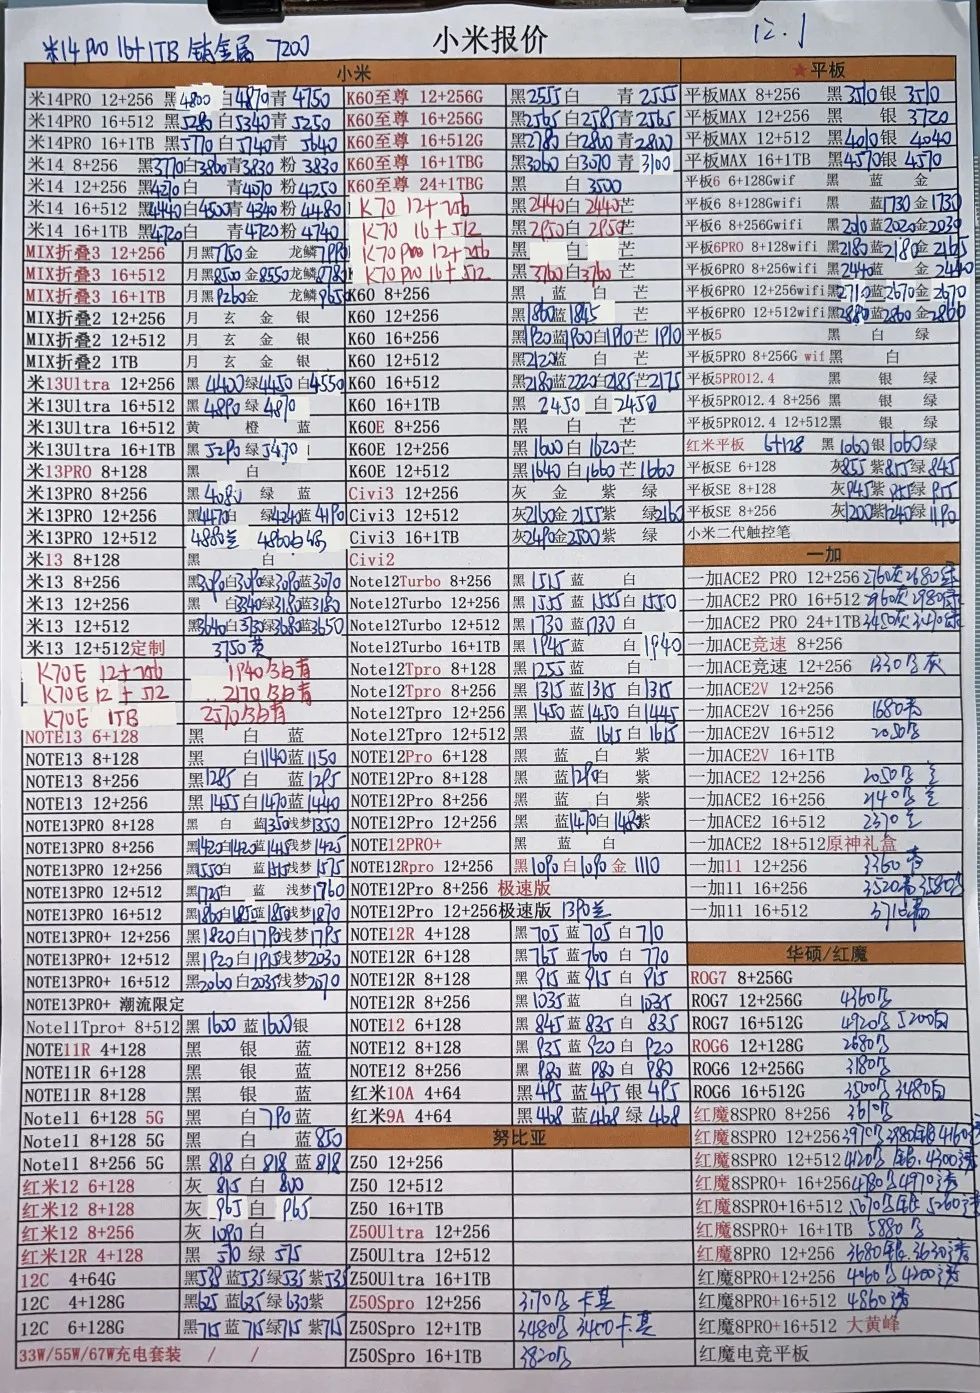 米14 Pro 16+1TB 钛金属 7200
小米报价
12.1
小米
米14PRO 12+256 黑4800 白4870 青4750
米14PRO 16+512 黑5280 白5340 青5250
米14PRO 16+1TB 黑5770 白5740 青5640
米14 8+256 黑3770 白3800 青3830 粉3830
米14 12+256 黑4270 白 青4070 粉4250
米14 16+512 黑4440 白4500 青4340 粉4480
米14 16+1TB 黑4720 白 青4720 粉4740
MIX折叠3 12+256 月黑7750 金 龙鳞7990
MIX折叠3 16+512 月黑8500 金8550 龙鳞8780
MIX折叠3 16+1TB 月黑9260 金 龙鳞9650
MIX折叠2 12+256 月 玄 金 银
MIX折叠2 12+512 月 玄 金 银
MIX折叠2 12 1TB 月 玄 金 银
米13Ultra 12+256 黑4400 绿4450 白4550
米13Ultra 16+512 黑4890 绿4870
米13Ultra 16+512 黄 橙 蓝
米13Ultra 16+1TB 黑5290 绿5470
米13PRO 8+128 黑 白
米13PRO 8+256 黑408 绿 蓝
米13PRO 12+256 黑4470 白 绿4240 蓝4190
米13PRO 12+512 4880
米13 8+128 黑 白
米13 8+256 黑3090 白3090 绿3090 蓝3070
米13 12+256 黑 白3340 绿3180 蓝3180
米13 12+512 黑3640 白3730 绿3680 蓝3650
米13 12+512定制 3750黄
K70E 12+256 1940 黑白青
K70E 12+512 2170 黑白青
K70E 1TB 2570 黑白青
NOTE13 6+128 黑 白 蓝
NOTE13 8+128 黑 白1140 蓝1150
NOTE13 8+256 黑1285 白 蓝1295
NOTE13 12+256 黑1455 白1470 蓝1440
NOTE13PRO 8+128 黑 白 蓝1350 浅梦1350
NOTE13PRO 8+256 黑1420 白1420 蓝1415 浅梦1425
NOTE13PRO 12+256 黑1550 白 蓝1515 浅梦1575
NOTE13PRO 12+512 黑1725 白 蓝 浅梦1760
NOTE13PRO 16+512 黑1860 白1815 蓝1850 浅梦1870
NOTE13PRO+ 12+256 黑1820 白1790 浅梦1795
NOTE13PRO+ 12+512 黑1920 白1915 浅梦2030
NOTE13PRO+ 16+512 黑2060 白2035 浅梦2070
NOTE13PRO+ 潮流限定
Note11Tpro+ 8+512 黑1600 蓝1600 银
NOTE11R 4+128 黑 银 蓝
NOTE11R 6+128 黑 银 蓝
NOTE11R 8+128 黑 银 蓝
Note11 6+128 5G 黑 白790 蓝
Note11 8+128 5G 黑 白 蓝850
Note11 8+256 5G 黑818 白818 蓝818
红米12 6+128 灰815 白800
红米12 8+128 灰965 白965
红米12 8+256 灰1090 白
红米12R 4+128 黑570 绿575
12C 4+64G 黑538 蓝535 绿535 紫535
12C 4+128G 黑625 蓝635 绿630 紫
12C 6+128G 黑715 蓝715 绿715 紫715
33W/55W/67W充电套装 / /
K60至尊 12+256G 黑2555 白 青2555
K60至尊 16+256G 黑2565 白2585 青2565
K60至尊 16+512G 黑2780 白2800 青2800
K60至尊 16+1TBG 黑3060 白3070 青3100
K60至尊 24+1TBG 黑 白3500
K70 12+256 黑2440 白2440 芒
K70 16+512 黑2850 白2850 芒
K70 Pro 12+256 黑 白 芒
K70 Pro 16+512 黑3760 白3760 芒
K60 8+256 黑 蓝 白 芒
K60 12+256 黑1860 蓝1845
K60 16+256 黑1920 蓝1900 白1910 芒1910
K60 12+512 黑2120 蓝 白 芒
K60 16+512 黑2180 蓝2220 白2185 芒2175
K60 16+1TB 黑2450 白2450
K60E 8+256 黑 白 芒
K60E 12+256 黑1600 白1620 芒
K60E 12+512 黑1640 白1660 芒1660
Civi3 12+256 灰 金 紫 绿
Civi3 12+512 灰2160 金2155 紫 绿2160
Civi3 16+1TB 灰2490 金2500 紫 绿
Civi2
Note12Turbo 8+256 黑1515 蓝 白
Note12Turbo 12+256 黑1555 蓝1555 白1550
Note12Turbo 12+512 黑1730 蓝1730 白
Note12Turbo 16+1TB 黑1945 蓝 白1940
Note12Tpro 8+128 黑1255 蓝 白
Note12Tpro 8+256 黑1315 蓝1315 白1315
Note12Tpro 12+256 黑1450 蓝1450 白1445
Note12Tpro 12+512 黑 蓝1615 白1615
NOTE12Pro 6+128 黑 蓝 白 紫
NOTE12Pro 8+128 黑 蓝1290 白 紫
NOTE12Pro 8+256 黑 蓝 白 紫
NOTE12Pro 12+256 黑 蓝1470 白1485 紫
NOTE12PRO+ 黑 蓝 白
NOTE12Rpro 12+256 黑1090 白1090 金1110
NOTE12Pro 8+256 极速版
NOTE12Pro 12+256极速版 1390蓝
NOTE12R 4+128 黑705 蓝705 白710
NOTE12R 6+128 黑765 蓝760 白770
NOTE12R 8+128 黑915 蓝915 白915
NOTE12R 8+256 黑1035 蓝 白1035
NOTE12 6+128 黑845 蓝835 白835
NOTE12 8+128 黑935 蓝920 白920
NOTE12 8+256 黑980 蓝980 白980
红米10A 4+64 黑495 蓝495 银495
红米9A 4+64 黑468 蓝468 绿468
努比亚
Z50 12+256
Z50 12+512
Z50 16+1TB
Z50Ultra 12+256
Z50Ultra 12+512
Z50Ultra 16+1TB
Z50Spro 12+256 3170黑 卡其
Z50Spro 12+1TB 3480黑 3400卡其
Z50Spro 16+1TB 3820黑
★平板
平板MAX 8+256 黑3510 银3510
平板MAX 12+256 黑 银3720
平板MAX 12+512 黑4010 银4040
平板MAX 16+1TB 黑4570 银4570
平板6 6+128Gwif 黑 蓝 金
平板6 8+128Gwifi 黑 蓝1730 金1730
平板6 8+256Gwifi 黑2010 蓝2020 金2030
平板6PRO 8+128wifi 黑2180 蓝2180 金2165
平板6PRO 8+256wifi 黑2440 蓝 金2440
平板6PRO 12+256wifi 黑2710 蓝2670 金2670
平板6PRO 12+512wifi 黑2880 蓝2860 金2860
平板5 黑 白 绿
平板5PRO 8+256G wif 黑 白
平板5PRO12.4 黑 银 绿
平板5PRO12.4 8+256 黑 银 绿
平板5PRO12.4 12+512 黑 银 绿
红米平板 6+128 黑1060 银1060 绿
平板SE 6+128 灰855 紫855 绿845
平板SE 8+128 灰945 紫955 绿955
平板SE 8+256 灰1200 紫1245 绿1190
小米二代触控笔
一加
一加ACE2 PRO 12+256 2760灰 2680绿
一加ACE2 PRO 16+512 2960灰 2980绿
一加ACE2 PRO 24+1TB 3450灰 3420绿
一加ACE竞速 8+256
一加ACE竞速 12+256 1330黑 灰
一加ACE2V 12+256
一加ACE2V 16+256 1680
一加ACE2V 16+512 2050黑
一加ACE2V 16+1TB
一加ACE2 12+256 2050黑
一加ACE2 16+256 2140黑
一加ACE2 16+512 2370
一加ACE2 18+512原神礼盒
一加11 12+256 3360
一加11 16+256 3520 3580
一加11 16+512 3710
华硕/红魔
ROG7 8+256G
ROG7 12+256G 4360黑
ROG7 16+512G 4920黑 5200白
ROG6 12+128G 2680黑
ROG6 12+256G 3180黑
ROG6 16+512G 3500黑 3480白
红魔8SPRO 8+256 3610黑
红魔8SPRO 12+256 3970黑 3980银 4160透
红魔8SPRO 12+512 4120黑 银 4300透
红魔8SPRO+ 16+256 4780黑 4970透
红魔8SPRO+16+512 5070黑银 5260透
红魔8SPRO+ 16+1TB 5880黑
红魔8PRO 12+256 3680银 3630透
红魔8PRO+12+256 4060黑 4200透
红魔8PRO+16+512 4860透
红魔8PRO+16+512 大黄蜂
红魔电竞平板